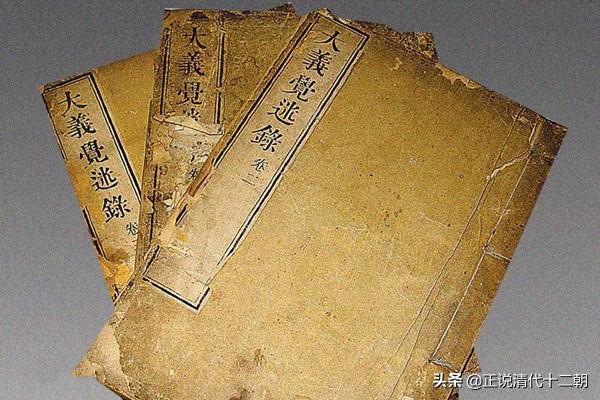 大義覺迷錄 卷
大義覺
大義覺迷錄 卷二
头条 @正说清代十二朝